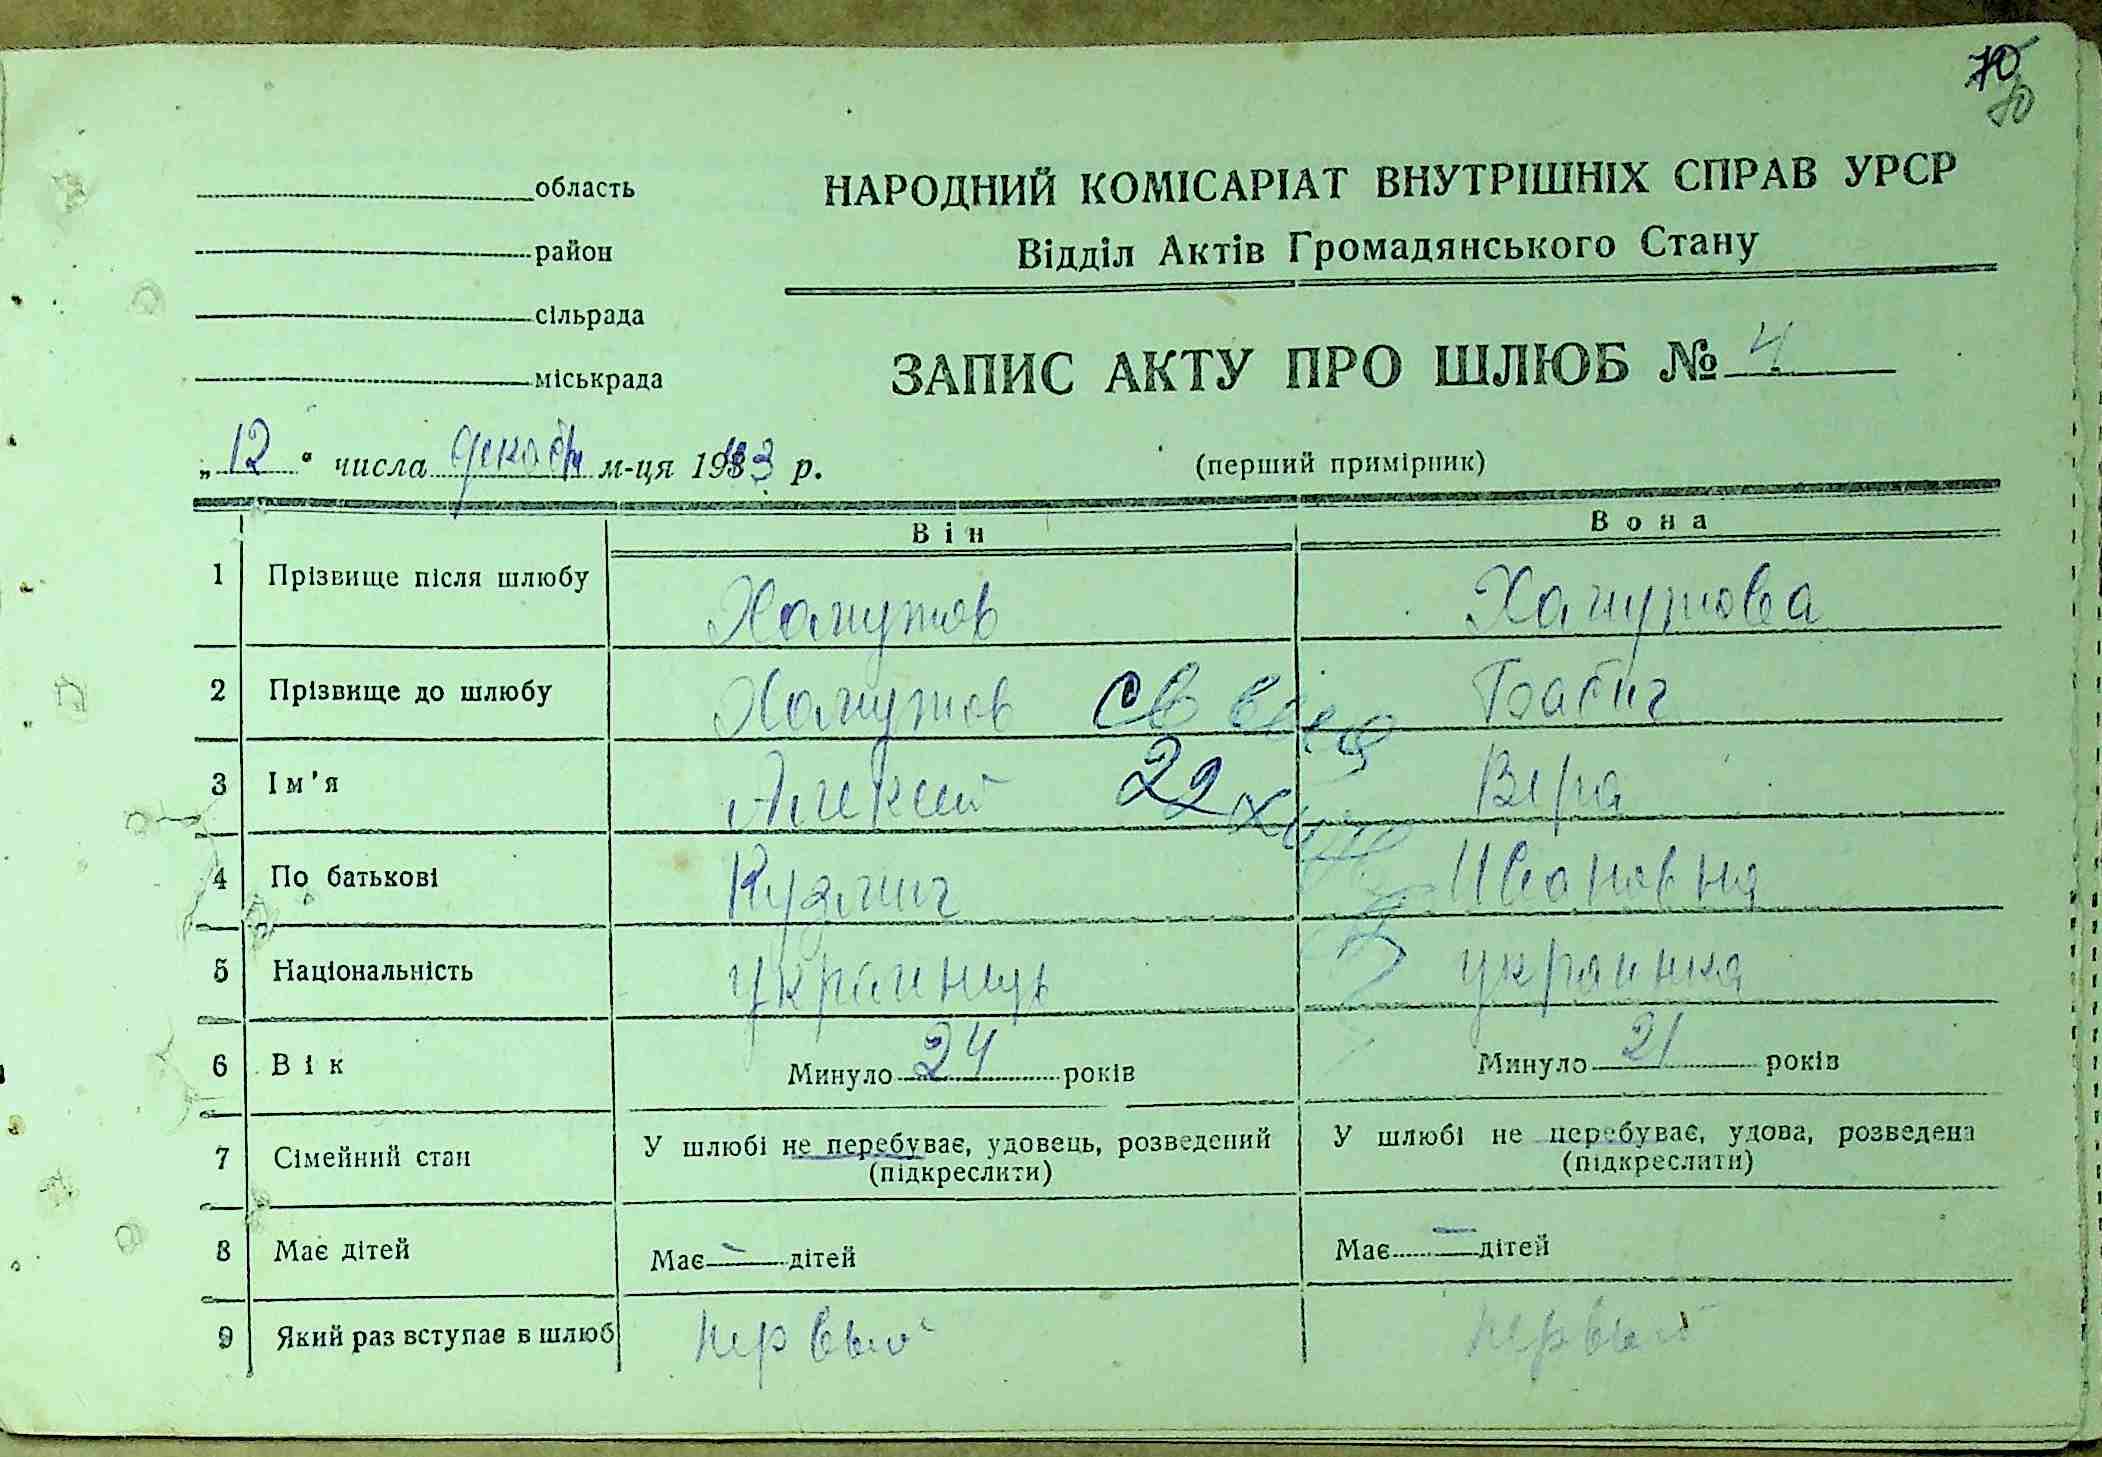 70
80
область
район
сільрада
міськрада
НАРОДНИЙ КОМІСАРІАТ ВНУТРІШНІХ СПРАВ УРСР
Відділ Актів Громадянського Стану
ЗАПИС АКТУ ПРО ШЛЮБ № 4
„12“ числа декабр м-ця 1943 р.
(перший примірник)
Він Вона
1 Прізвище після шлюбу Хомутов Хомутова
2 Прізвище до шлюбу Хомутов Бабич
3 Ім'я Алексей Вера
4 По батькові Кузмич Ивановна
5 Національність украинець украинка
6 Вік Минуло 24 років Минуло 21 років
7 Сімейний стан У шлюбі не перебуває, удовець, розведений (підкреслити) У шлюбі не перебуває, удова, розведена (підкреслити)
8 Має дітей Має - дітей Має - дітей
9 Який раз вступає в шлюб первый первый